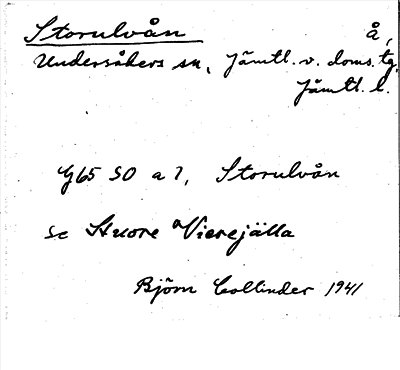 Storulvån å,
Undersåkers sn, Jämtl. v. doms. tg.
Jämtl. l.
G65 SO a 7, Storulvån
se Stuore Vierejälla
Björn Collinder 1941